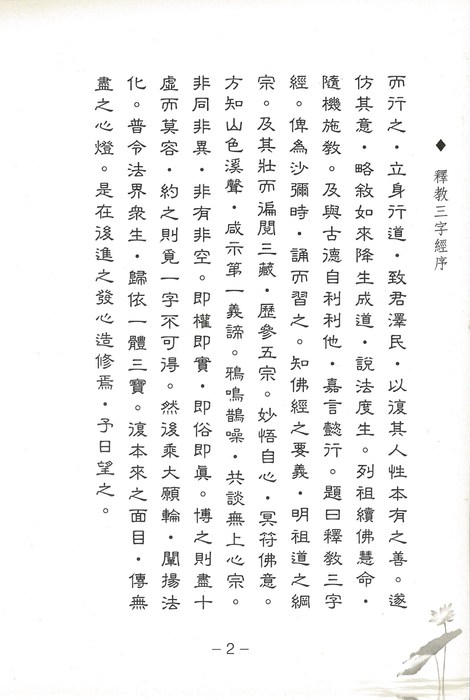 ◆ 釋教三字經序
而行之・立身行道・致君澤民・以復其人性本有之善。遂
仿其意・略敘如來降生成道・說法度生。列祖續佛慧命・
隨機施教。及與古德自利利他・嘉言懿行。題曰釋教三字
經。俾為沙彌時・誦而習之。知佛經之要義・明祖道之綱
宗。及其壯而遍閱三藏・歷參五宗。妙悟自心・冥符佛意。
方知山色溪聲・咸示第一義諦。鴉鳴鵲噪・共談無上心宗。
非同非異・非有非空。即權即實・即俗即真。博之則盡十
虛而莫容・約之則覓一字不可得。然後乘大願輪・闡揚法
化。普令法界眾生・歸依一體三寶。復本來之面目・傳無
盡之心燈。是在後進之發心造修焉・予日望之。
－2－